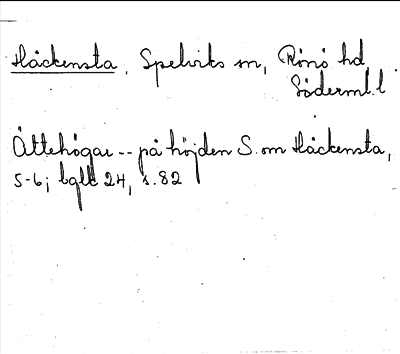 Håckensta, Spelviks sn, Rönö hd
Söderml. l
Ättehögar -- på höjden S. om Håckensta,
5-6; bglt 24, s. 82